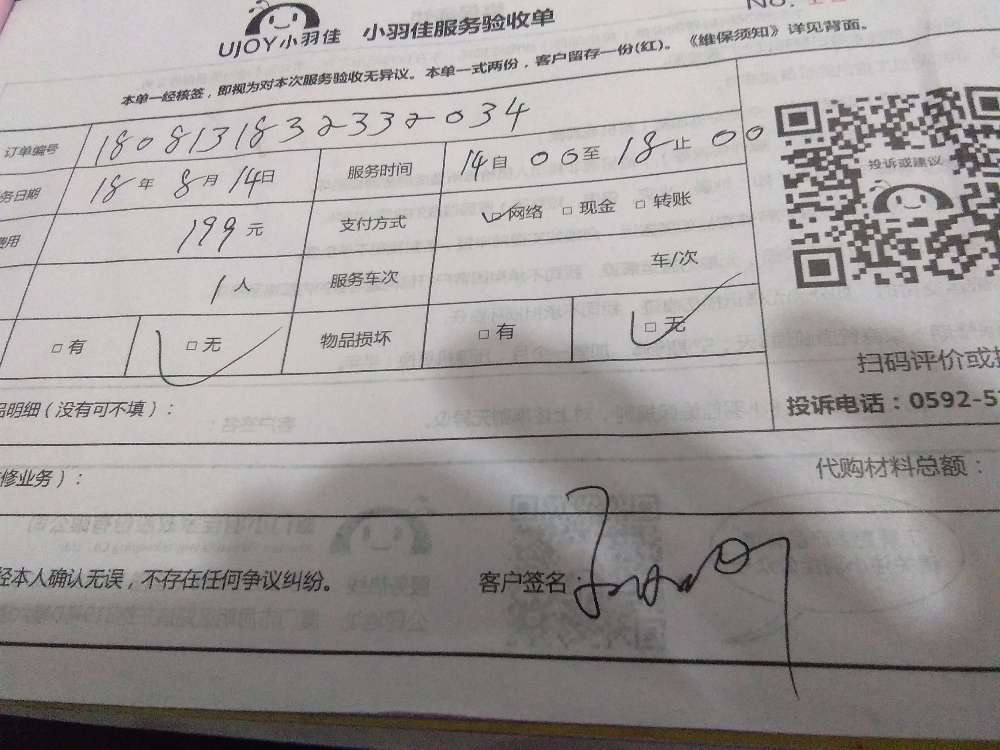 NO.
UJOY小羽佳 小羽佳服务验收单
本单一经核签，即视为对本次服务验收无异议。本单一式两份，客户留存一份(红)。《维保须知》详见背面。
订单编号 1808131832332034
务日期 18年8月14日 服务时间 14自00至18止00
费用 199元 支付方式 ☑网络 □现金 □转账
1人 服务车次 车/次
□有 □无 物品损坏 □有 □无
投诉或建议
扫码评价或
投诉电话：0592-5
品明细（没有可不填）：
修业务）： 代购材料总额：
经本人确认无误，不存在任何争议纠纷。 客户签名：